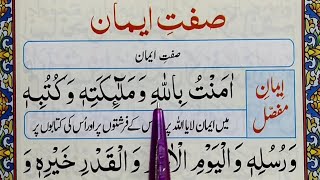 صفتِ ایمان
صفتِ ایمان
ایمانِ مفصّل
اٰمَنْتُ بِاللّٰهِ وَمَلٰٓئِكَتِهٖ وَكُتُبِهٖ
میں ایمان لایا اللہ پر کے فرشتوں پر اور اُس کی کتابوں پر
وَرُسُلِهٖ وَالْيَوْمِ وَالْقَدْرِ خَيْرِهٖ وَ